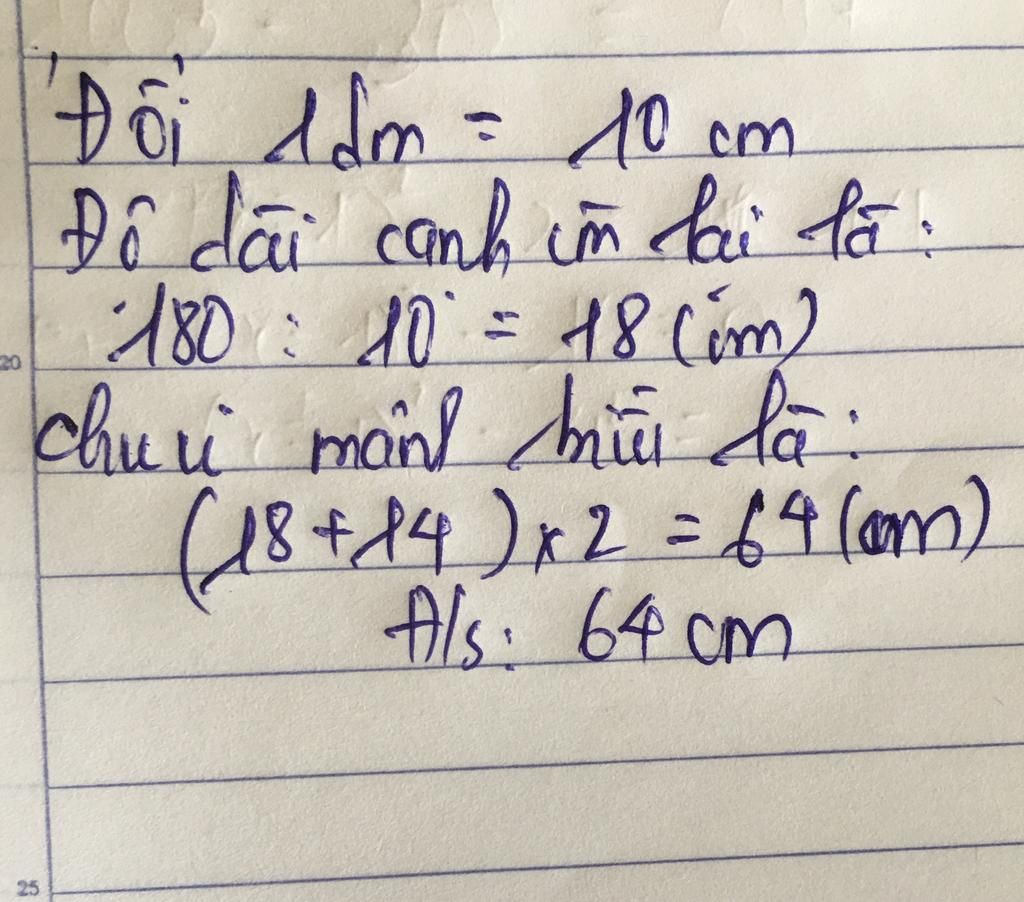 Đổi 1dm = 10 cm
Độ dài cạnh còn lại là:
180 : 10 = 18 (cm)
Chu vi mảnh bìa là:
(18 + 14) x 2 = 64 (cm)
Đ/s: 64 cm
20
25